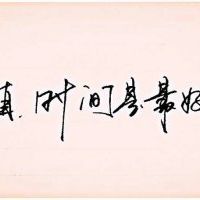 时间是最好